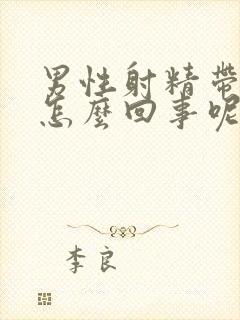 男性射精帶
怎麼回事呢
李良